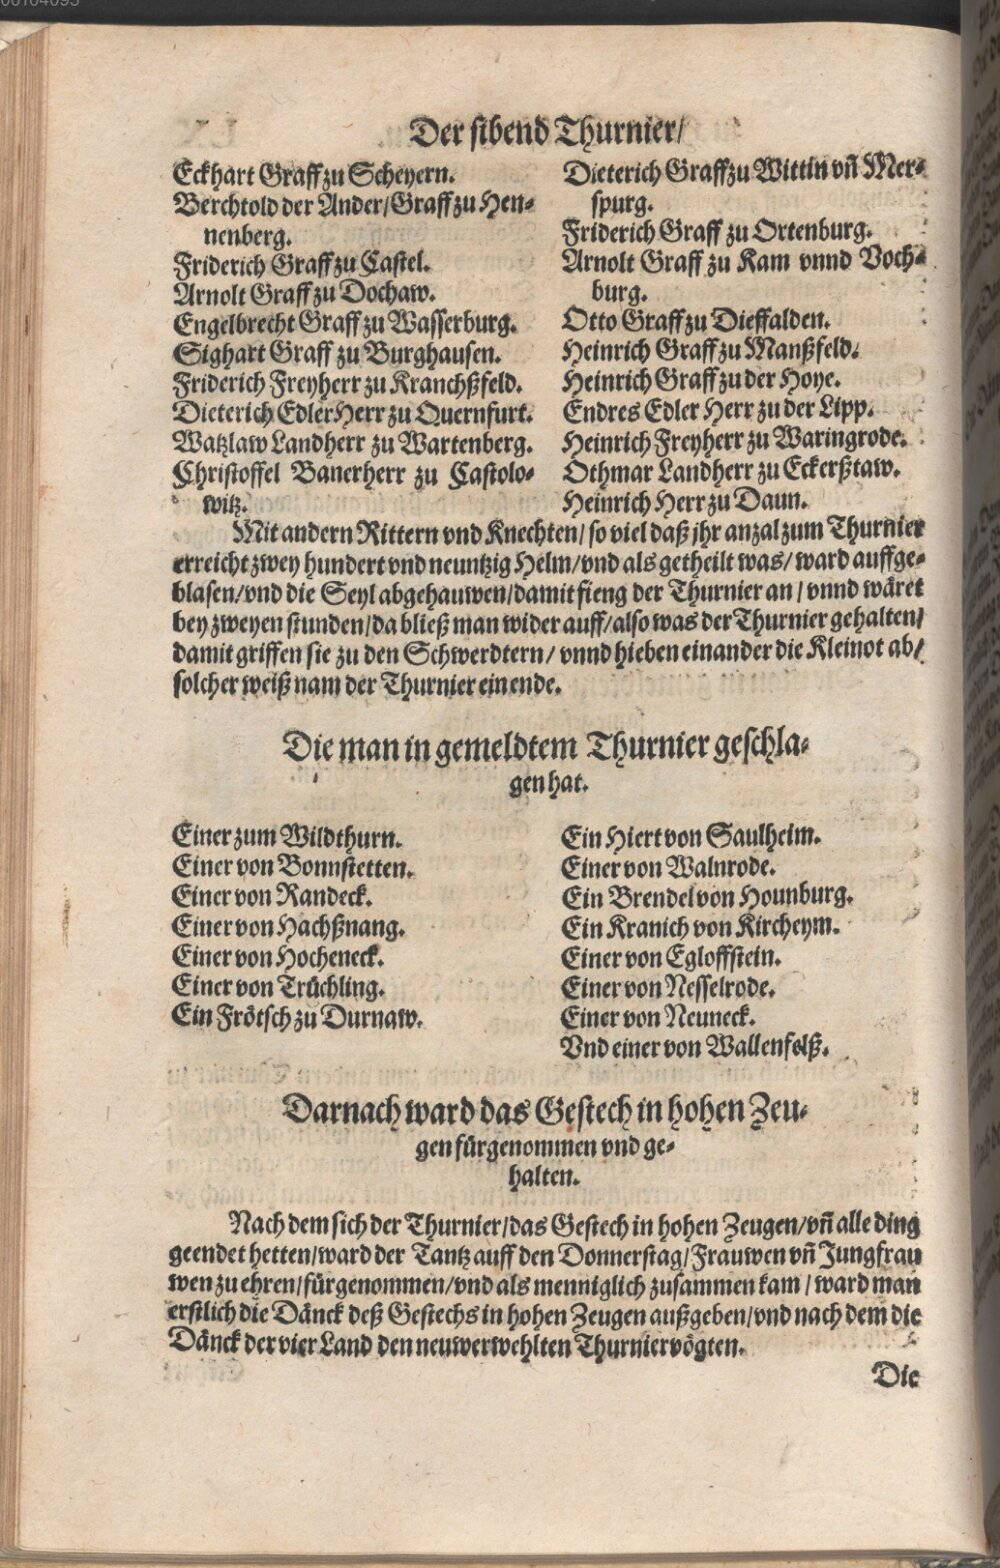 00104095
Der sibend Thurnier/
Eckhart Graff zu Scheyern.
Berchtold der Ander/Graff zu Hen⸗
nenberg.
Friderich Graff zu Castel.
Arnolt Graff zu Dochaw.
Engelbrecht Graff zu Wasserburg.
Sighart Graff zu Burghausen.
Friderich Freyherr zu Kranchßfeld.
Dieterich Edler Herr zu Quernfurt.
Watzlaw Landherr zu Wartenberg.
Christoffel Banerherr zu Castolo⸗
witz.
Dieterich Graff zu Wittin vñ Mer⸗
spurg.
Friderich Graff zu Ortenburg.
Arnolt Graff zu Kam vnnd Voch⸗
burg.
Otto Graff zu Dieffalden.
Heinrich Graff zu Manßfeld.
Heinrich Graff zu der Hoye.
Endres Edler Herr zu der Lipp.
Heinrich Freyherr zu Waringrode.
Othmar Landherr zu Eckerßtaw.
Heinrich Herr zu Daun.
Mit andern Rittern vnd Knechten/ so viel daß jhr anzal zum Thurnier
erreicht zwey hundert vnd neuntzig Helm/vnd als getheilt was/ ward auffge⸗
blasen/vnd die Seyl abgehauwen/damit fieng der Thurnier an / vnnd wäret
bey zweyen stunden/da bließ man wider auff/also was der Thurnier gehalten/
damit griffen sie zu den Schwerdtern/ vnnd hieben einander die Kleinot ab/
solcher weiß nam der Thurnier ein ende.
Die man in gemeldtem Thurnier geschla⸗
gen hat.
Einer zum Wildthurn.
Einer von Bonnstetten.
Einer von Randeck.
Einer von Hachßnang.
Einer von Hocheneck.
Einer von Trüchling.
Ein Frötsch zu Durnaw.
Ein Hiert von Saulheim.
Einer von Walnrode.
Ein Brendel von Hounburg.
Ein Kranich von Kircheym.
Einer von Egloffstein.
Einer von Nesselrode.
Einer von Neuneck.
Vnd einer von Wallenfelß.
Darnach ward das Gestech in hohen Zeu⸗
gen fürgenommen vnd ge⸗
halten.
Nach dem sich der Thurnier/das Gestech in hohen Zeugen/vñ alle ding
geendet hetten/ward der Tantz auff den Donnerstag/Frauwen vñ Jungfrau
wen zu ehren/fürgenommen/vnd als menniglich zusammen kam / ward man
erstlich die Dänck deß Gestechs in hohen Zeugen außgeben/vnd nach dem die
Dänck der vier Land den neuwerwehlten Thurniervögten.
Die